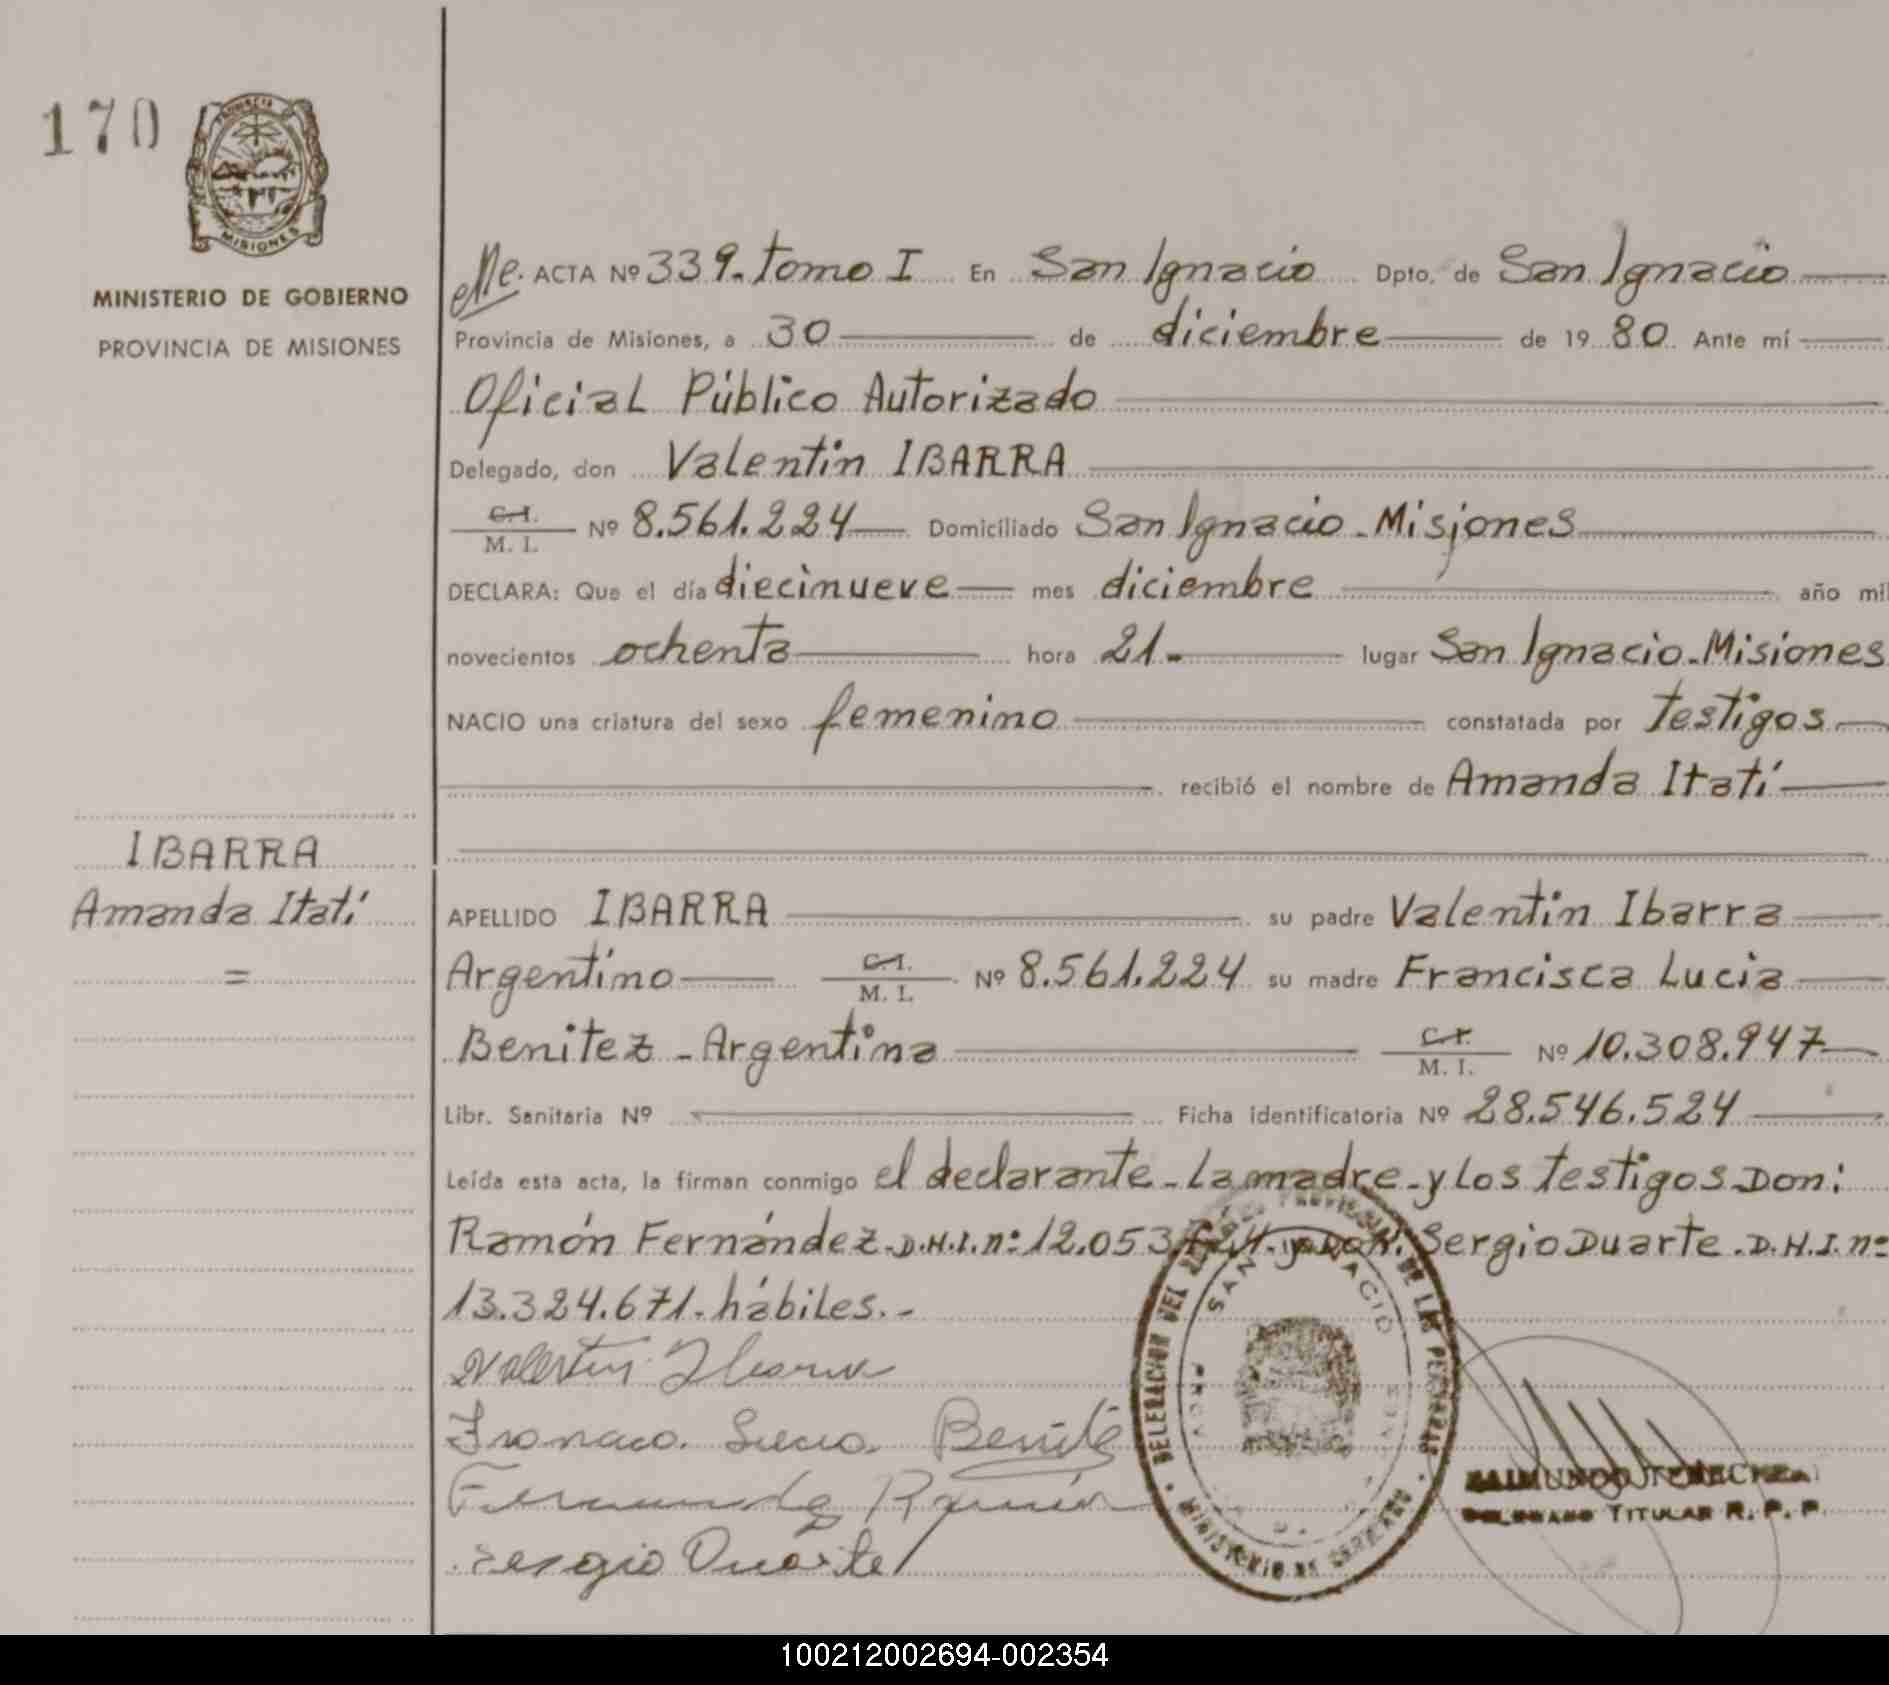 170
MISIONES
MINISTERIO DE GOBIERNO
PROVINCIA DE MISIONES
ACTA Nº 339. tomo I En San Ignacio Dpto. de San Ignacio
Provincia de Misiones, a 30 de diciembre de 1980. Ante mí
Oficial Público Autorizado
Delegado, don Valentín IBARRA
C.I. M. I. Nº 8.561.224 Domiciliado San Ignacio - Misiones
DECLARA: Que el día diecinueve mes diciembre año mil
novecientos ochenta hora 21.- lugar San Ignacio - Misiones
NACIO una criatura del sexo femenino constatada por testigos
recibió el nombre de Amanda Itatí
IBARRA
Amanda Itatí
=
APELLIDO IBARRA su padre Valentín Ibarra
Argentino C.I. M. I. Nº 8.561.224 su madre Francisca Lucia
Benitez - Argentina C.I. M. I. Nº 10.308.947
Libr. Sanitaria Nº Ficha identificatoria Nº 28.546.524
Leída esta acta, la firman conmigo el declarante - la madre - y los testigos Don:
Ramón Fernández - D.N.I. nº 12.053 y Don: Sergio Duarte - D.N.I. nº
13.324.671 - hábiles.-
Valentin Ibarra
Lucia Benite
Fernandez Ramón
Sergio Duarte
DELEGACION DEL DE LAS PERSONAS
SAN IGNACIO
MINISTERIO DE GOBIERNO
TITULAR R. P. P.
100212002694-002354